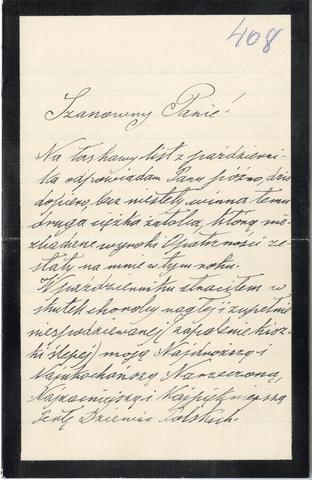 408
Szanowny Panie!
Na łaskawy list z październi-
ka odpowiadam Panu późno, dziś
dopiero, lecz niestety winna temu
druga ciężka żałoba, którą nie-
zbadane wyroki Opatrzności ze-
słały na mnie w tym roku.
W październiku straciłem w
skutek choroby nagłej i zupełnie
niespodziewanej (zapalenie kisz-
ki ślepej) moją Najdroższą i
Najukochańszą Narzeczoną,
Najzacniejszą i Najpiękniejszą
Perłę Dziewic Polskich.